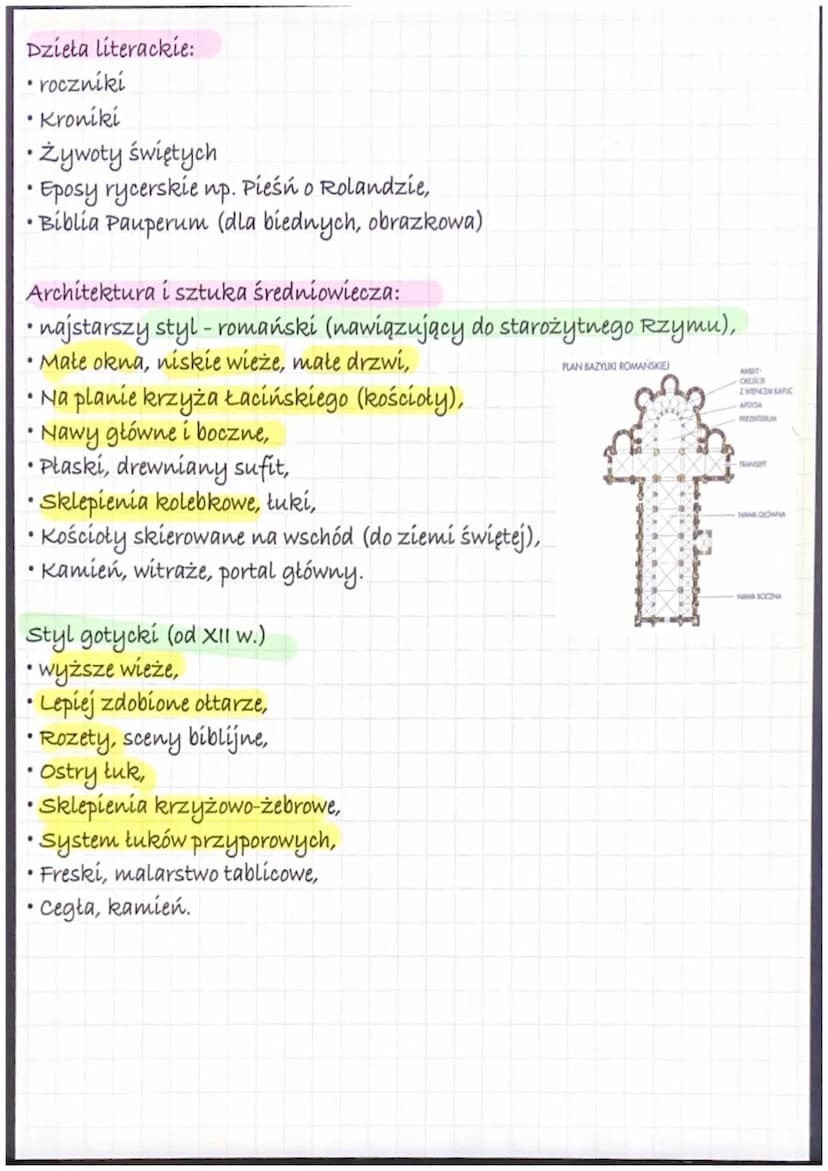 Dzieła literackie:
• roczniki
• Kroniki
• Żywoty świętych
• Eposy rycerskie np. Pieśń o Rolandzie,
• Biblia Pauperum (dla biednych, obrazkowa)
Architektura i sztuka średniowiecza:
• najstarszy styl - romański (nawiązujący do starożytnego Rzymu),
• Małe okna, niskie wieże, małe drzwi,
• Na planie krzyża Łacińskiego (kościoły),
• Nawy główne i boczne,
• Płaski, drewniany sufit,
• Sklepienia kolebkowe, łuki,
• Kościoły skierowane na wschód (do ziemi świętej),
• Kamień, witraże, portal główny.
PLAN BAZYLIKI ROMAŃSKIEJ
AMBIT-
OBEJŚCIE
Z WIEŃCEM KAPLIC
APSYDA
PREZBITERIUM
TRANSEPT
NAWA GŁÓWNA
NAWA BOCZNA
Styl gotycki (od XII w.)
• wyższe wieże,
• Lepiej zdobione ołtarze,
• Rozety, sceny biblijne,
• Ostry łuk,
• Sklepienia krzyżowo-żebrowe,
• System łuków przyporowych,
• Freski, malarstwo tablicowe,
• Cegła, kamień.